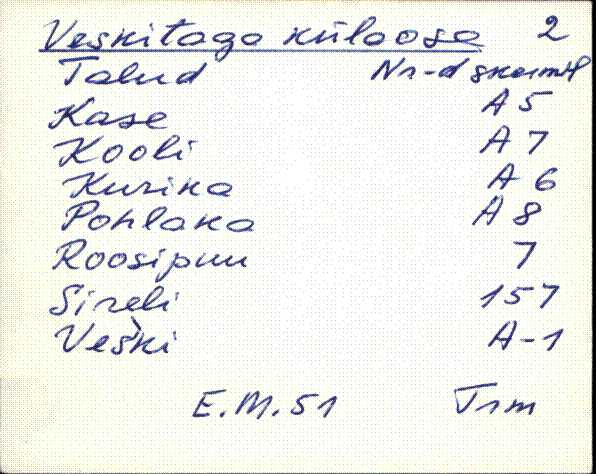 Veskitaga külaosa 2
Talud Nr-d skeemil
Kase A 5
Kooli A 7
Kurika A 6
Pohlaka A 8
Roosipuu 7
Sireli 157
Veski A-1
E.M. 51 Trm